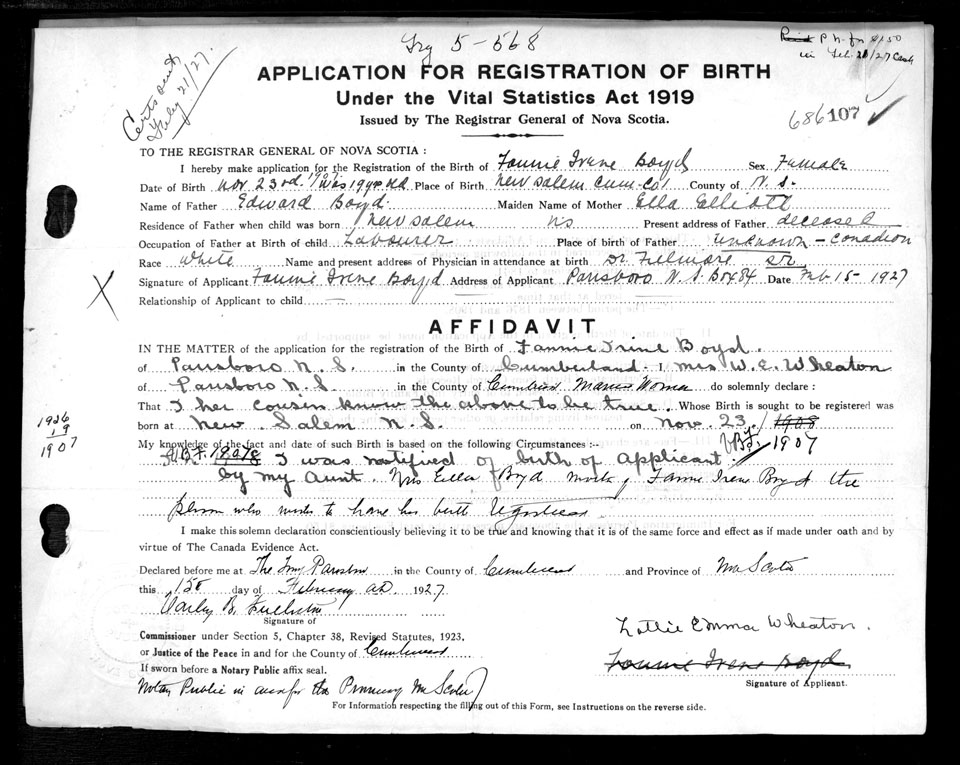 5-568
in Feb. 21/27 Cash
Certs sent
21/27.
APPLICATION FOR REGISTRATION OF BIRTH
Under the Vital Statistics Act 1919
Issued by The Registrar General of Nova Scotia.
686107
TO THE REGISTRAR GENERAL OF NOVA SCOTIA :
I hereby make application for the Registration of the Birth of Fannie Irene Boyd Sex Female
Date of Birth Nov 23rd. 1907 was 19 yrs old Place of Birth New Salem Cum. Co County of N. S.
Name of Father Edward Boyd Maiden Name of Mother Ella Elliott
Residence of Father when child was born New Salem NS Present address of Father deceased
Occupation of Father at Birth of child Labourer Place of birth of Father unknown – Canadian
Race White Name and present address of Physician in attendance at birth Dr Fillmore sr
Signature of Applicant Fannie Irene Boyd Address of Applicant Parrsboro N. S. Box 84 Date Feb 15 - 1927
Relationship of Applicant to child
X
AFFIDAVIT
IN THE MATTER of the application for the registration of the Birth of Fannie Irine Boyd.
of Parrsboro N. S. in the County of Cumberland. I Mrs W. E. Wheaton
of Parrsboro N. S. in the County of Married Woman do solemnly declare :
That I her cousin know the above to be true. Whose Birth is sought to be registered was
born at New Salem N. S. on Nov. 23 1908
1907
1926
19
1907
My knowledge of the fact and date of such Birth is based on the following Circumstances :-
I was notified of birth of applicant
by my aunt. Mrs Ella Boyd mother of Fannie Irene Boyd the
person who wishes to have her birth registered
I make this solemn declaration conscientiously believing it to be true and knowing that it is of the same force and effect as if made under oath and by
virtue of The Canada Evidence Act.
Declared before me at The Town Parrsboro in the County of Cumberland and Province of Nova Scotia
this 15th day of February AD. 1927
Signature of
Commissioner under Section 5, Chapter 38, Revised Statutes, 1923,
or Justice of the Peace in and for the County of Cumberland
If sworn before a Notary Public affix seal.
Notary Public in and for the Province of Nova Scotia
Lottie Emma Wheaton.
Fannie Irene Boyd
Signature of Applicant.
For Information respecting the filling out of this Form, see Instructions on the reverse side.